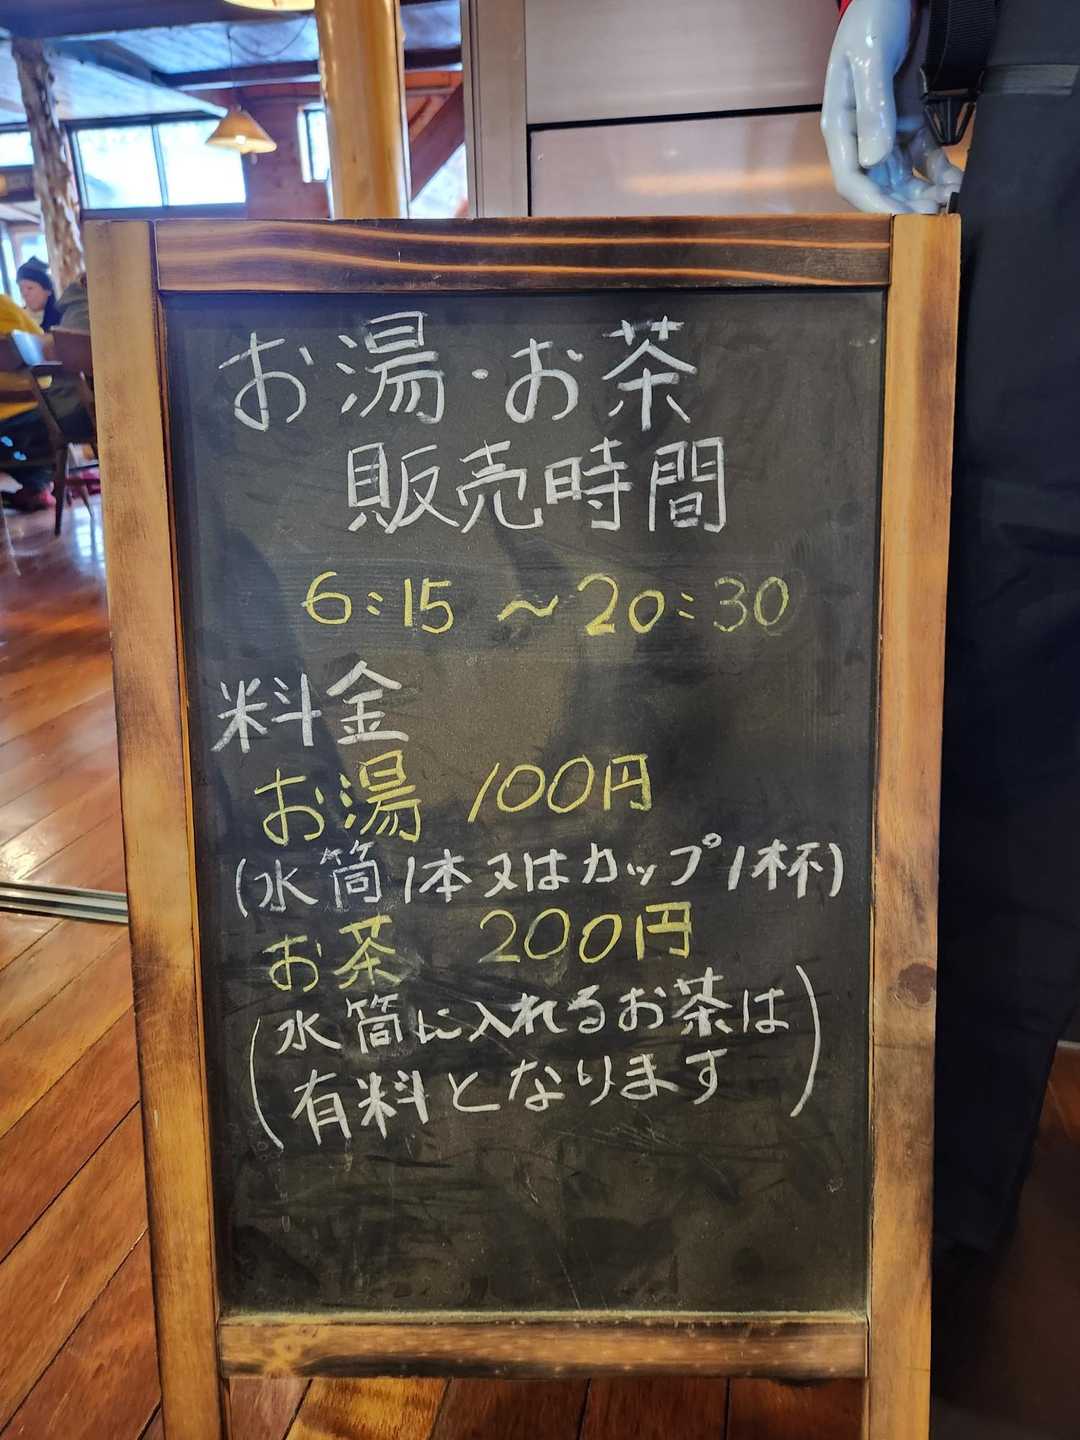 お湯・お茶
販売時間
6:15 ～ 20:30
料金
お湯 100円
(水筒1本又はカップ1杯)
お茶 200円
(水筒に入れるお茶は
有料となります)